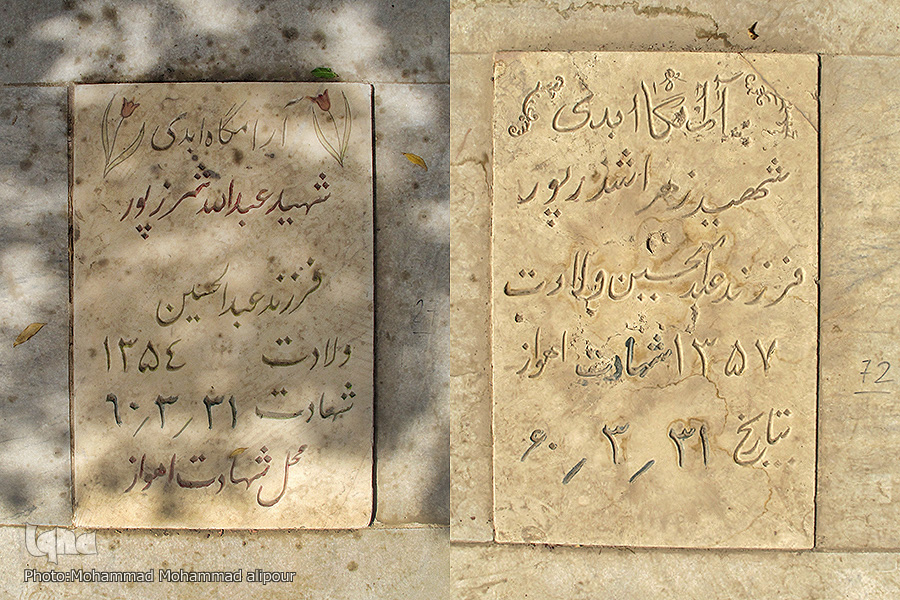 آرامگاه ابدی
شهید عبدالله شمرزپور
فرزند عبدالحسین
ولادت ۱۳۵۴
شهادت ۳۱/۳/۶۰
محل شهادت اهواز
آرامگا ابدی
شهید زهرا اشذرپور
فرزند عبدالحسین ولادت
۱۳۵۷ شهادت اهواز
بتاریخ ۳۱/۳/۶۰
72
iqna
Photo:Mohammad Mohammad alipour